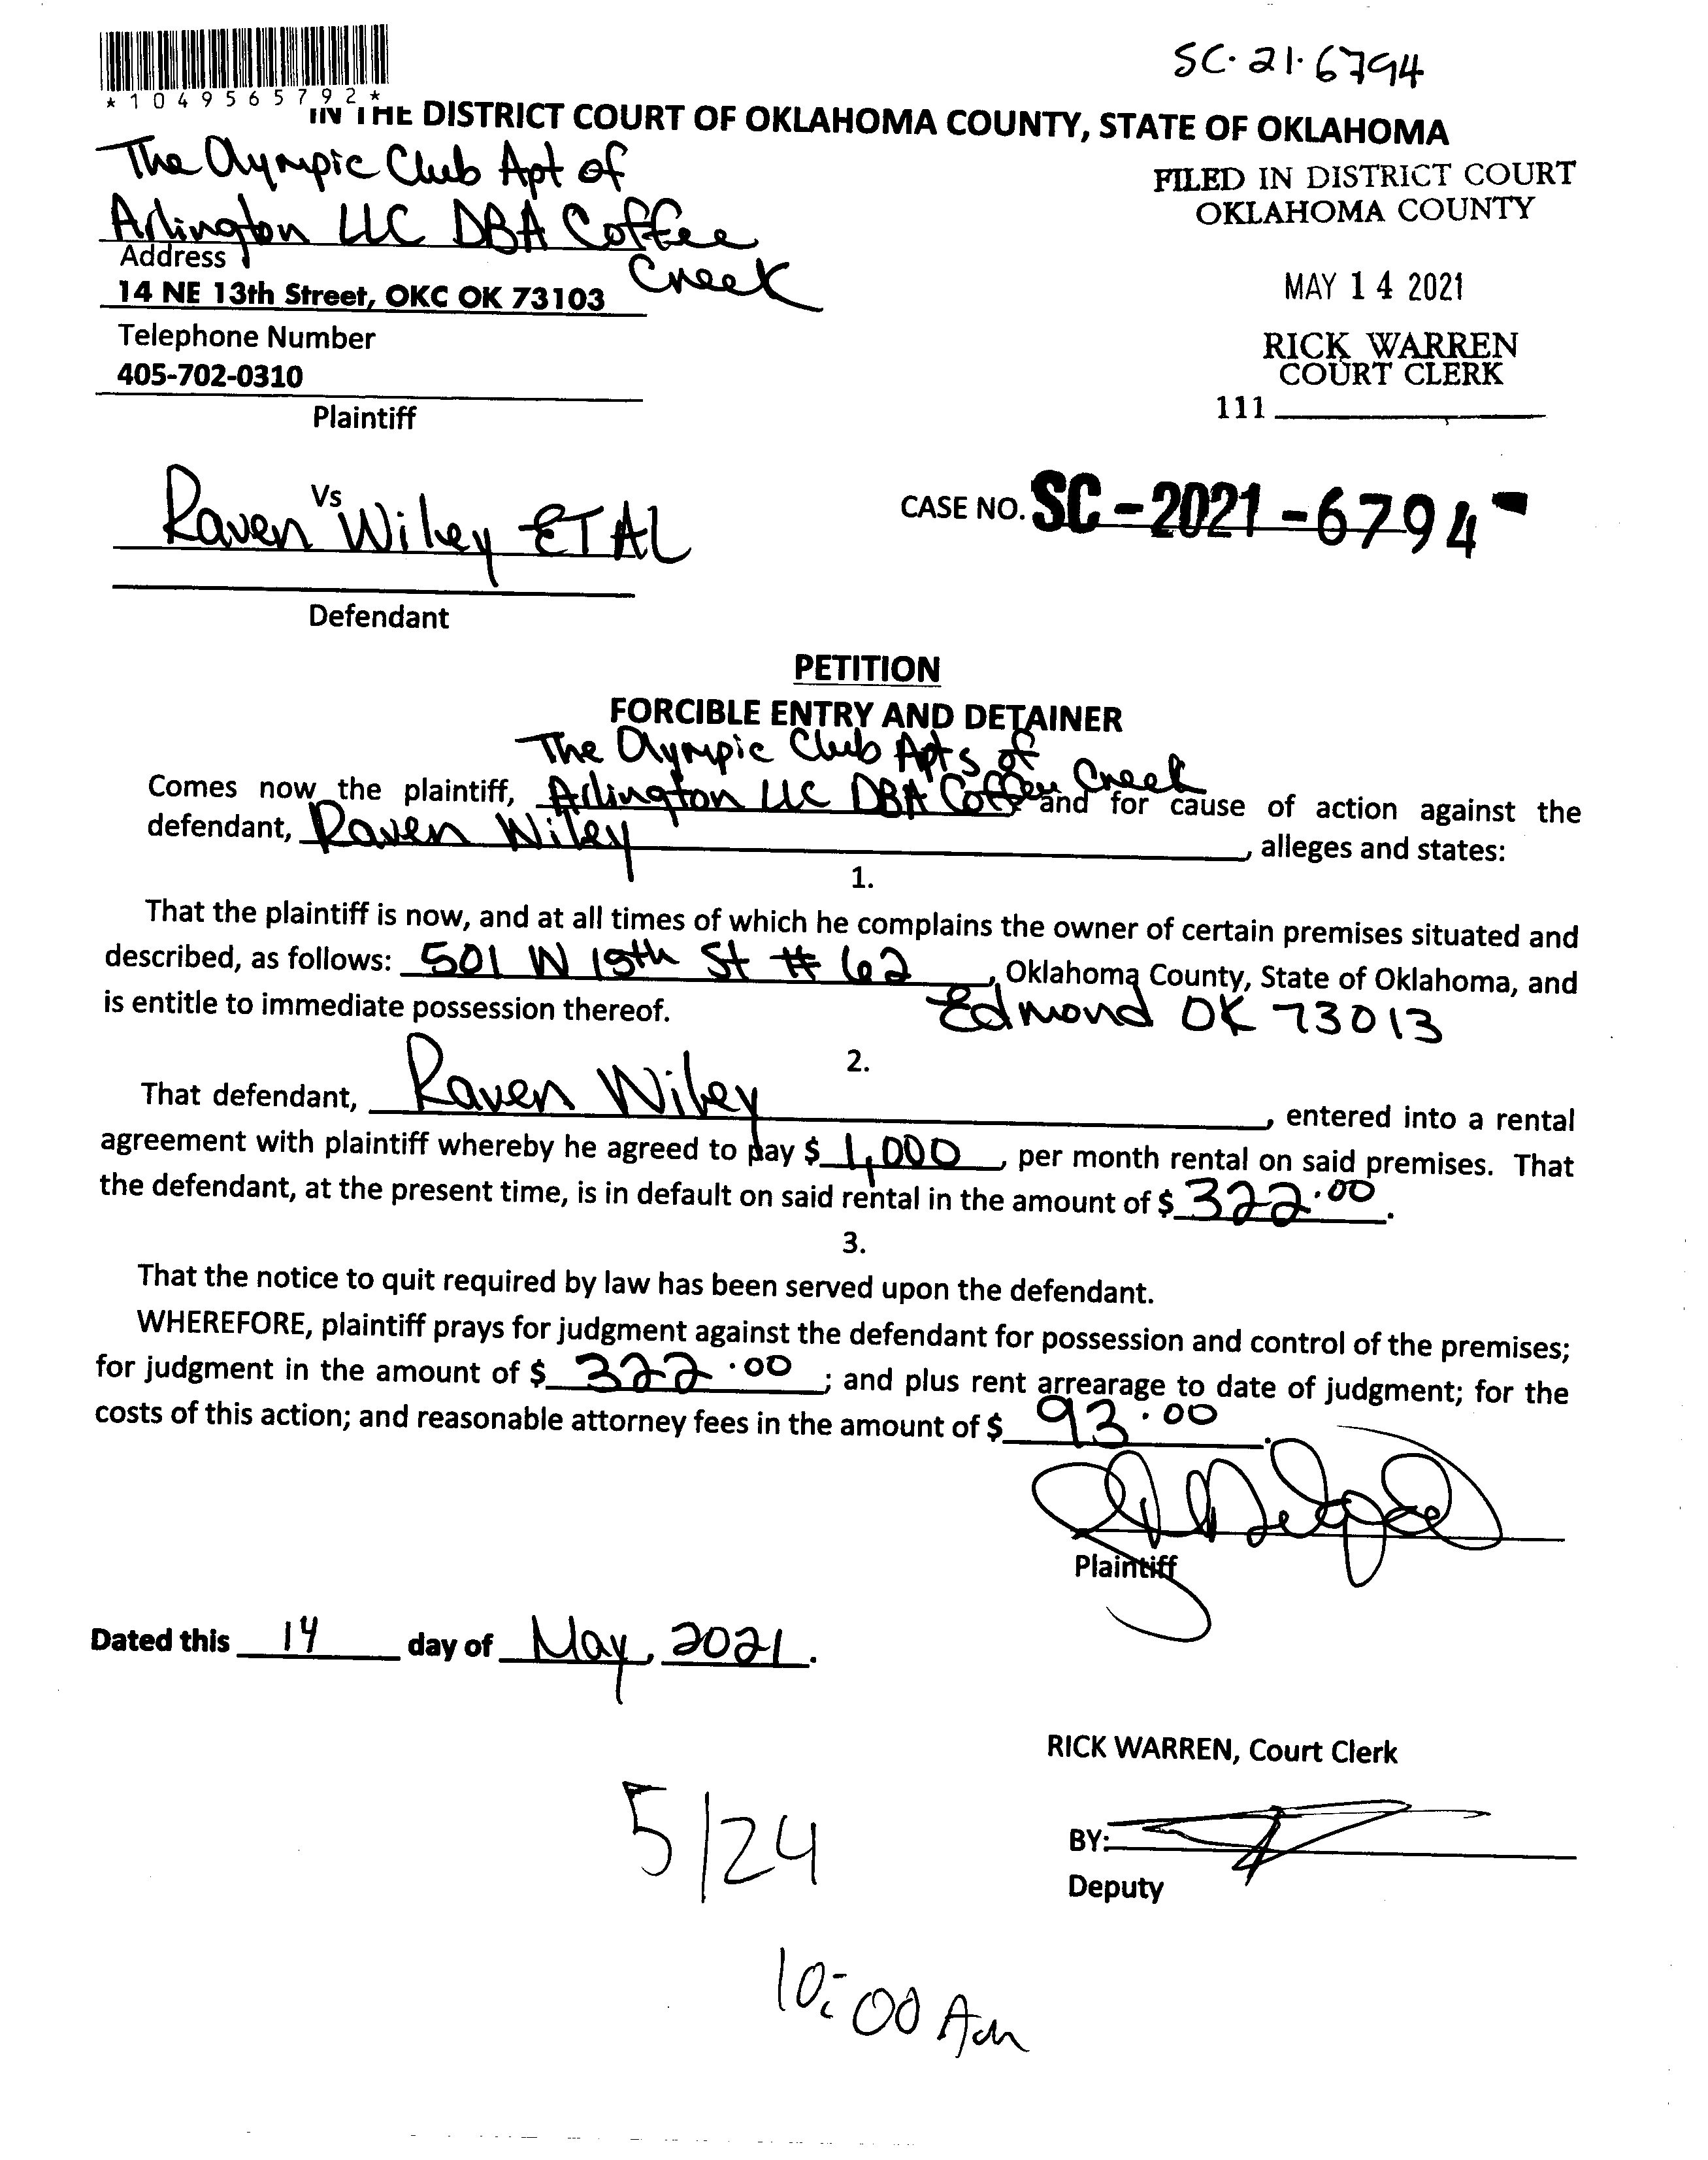 SC·21·6794
*1049565792*
IN THE DISTRICT COURT OF OKLAHOMA COUNTY, STATE OF OKLAHOMA
The Olympic Club Apt of
Arlington LLC DBA Coffee
Creek
Address
14 NE 13th Street, OKC OK 73103
Telephone Number
405-702-0310
Plaintiff
FILED IN DISTRICT COURT
OKLAHOMA COUNTY
MAY 14 2021
RICK WARREN
COURT CLERK
111
Vs
Raven Wiley ET AL
Defendant
CASE NO. SC-2021-6794-
PETITION
FORCIBLE ENTRY AND DETAINER
The Olympic Club Apts of
Comes now the plaintiff, Arlington LLC DBA Coffee Creek and for cause of action against the
defendant, Raven Wiley, alleges and states:
1.
That the plaintiff is now, and at all times of which he complains the owner of certain premises situated and
described, as follows: 501 W 15th St # 62, Oklahoma County, State of Oklahoma, and
is entitle to immediate possession thereof. Edmond OK 73013
2.
That defendant, Raven Wiley, entered into a rental
agreement with plaintiff whereby he agreed to pay $ 1,000, per month rental on said premises. That
the defendant, at the present time, is in default on said rental in the amount of $ 322.00.
3.
That the notice to quit required by law has been served upon the defendant.
WHEREFORE, plaintiff prays for judgment against the defendant for possession and control of the premises;
for judgment in the amount of $ 322.00; and plus rent arrearage to date of judgment; for the
costs of this action; and reasonable attorney fees in the amount of $ 93.00.
Plaintiff
Dated this 14 day of May, 2021.
RICK WARREN, Court Clerk
5/24
BY:
Deputy
10:00 Am